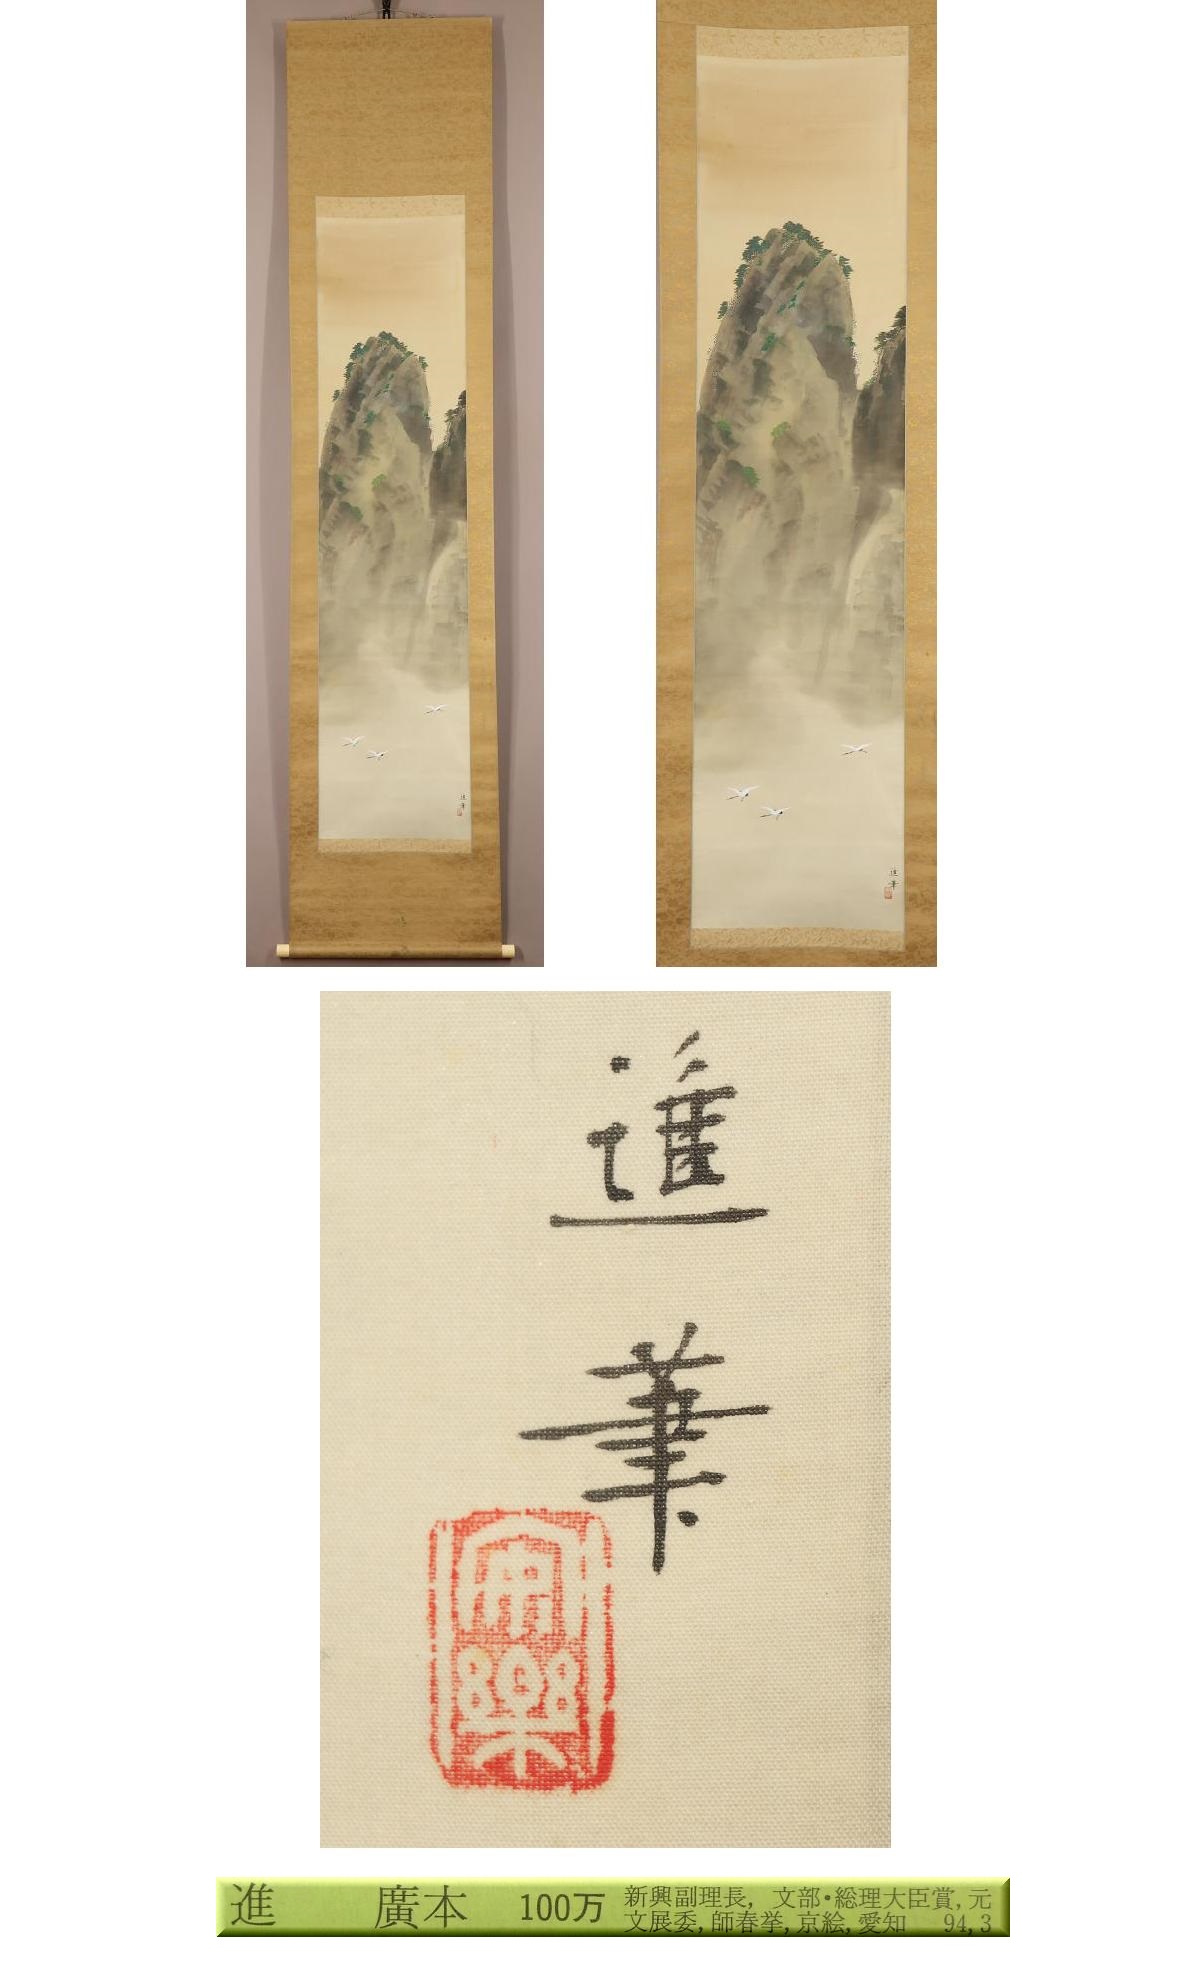 進筆
進 廣本 100万 新興副理長, 文部・総理大臣賞, 元
文展委, 師春挙, 京絵, 愛知 94, 3